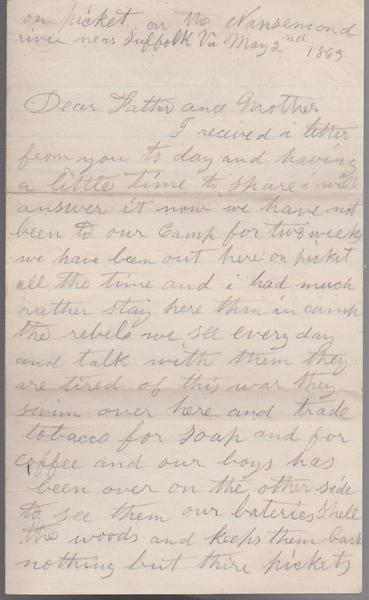 on picket on the Nansemond
river near Suffolk Va May 2nd 1863
Dear Father and Mother
I recived a letter
from you to day and having
a little time to spare i will
answer it now we have not
been to our Camp for two weeks
we have been out here on picket
all the time and i had much
rather stay here than in camp
the rebels we see every day
and talk with them they
are tired of this war they
swim over here and trade
tobacco for soap and for
coffee and our boys has
been over on the other side
to see them our bateries shell
the woods and keeps them back
nothing but thire pickets